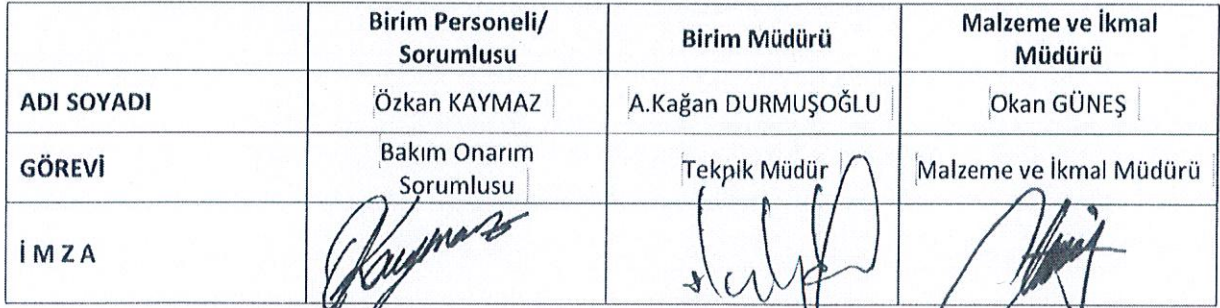 Birim Personeli/
Sorumlusu
Birim Müdürü
Malzeme ve İkmal
Müdürü
ADI SOYADI
Özkan KAYMAZ
A.Kağan DURMUŞOĞLU
Okan GÜNEŞ
GÖREVİ
Bakım Onarım
Sorumlusu
Teknik Müdür
Malzeme ve İkmal Müdürü
İ M Z A
Kaymaz